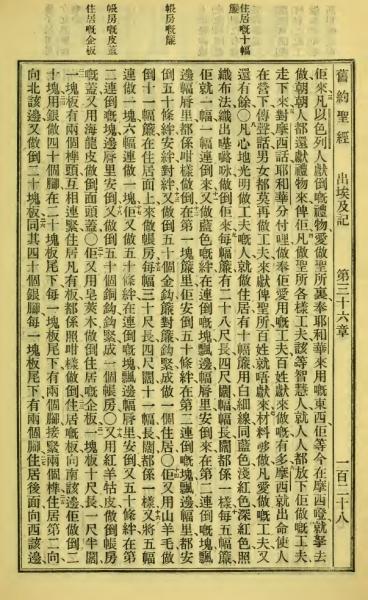 住居嘅十幅簾
帳房嘅簾
帳房嘅皮蓋
住居嘅企板
舊約聖經 出埃及記 第三十六章 一百二十八
佢來凡以色列人獻倒嘅禮物愛做聖所裏奉耶和華來用嘅東西佢等今在摩西噔就拏去
做朝朝人都還獻禮物來俾佢凡做聖所各樣工夫該等智慧人就人人都放下佢做嘅工夫
走下來對摩西話耶和華分付哩做奉佢愛用嘅工夫百姓獻來做嘅有多摩西就出命使人
在營下傳聲話男女都莫再做工夫來獻俾聖所百姓就唔獻來材料够做凡愛做嘅工夫又
還有餘〇凡心地光明做工夫嘅人就做住居有十幅簾用白細線同藍色淺紅色深紅色照
織布法織出做倒佢來每幅簾有二十八尺長四尺闊幅幅簾長闊都係一樣每五幅簾
佢就一幅一幅連倒來又做藍色嘅絆在連倒嘅塊飄邊幅脣里安倒來在第二連倒嘅塊飄
邊幅脣里都係咁樣做倒在第一塊簾里佢安倒五十條絆在第二連倒嘅塊飄邊幅脣里都安
倒五十條絆安絆對絆又做倒五十個金鈎簾對簾鈎緊成做一個住居〇佢又用山羊毛做
倒十一幅簾在住居面上來做帳房每幅三十尺長四尺闊十一幅長闊都係一樣又將五幅
連做一塊六幅連做一塊佢又做五十條絆在連倒嘅塊飄邊幅脣里安倒又五十條絆在第
二連倒嘅塊邊脣里安倒又做倒五十個銅鈎鈎緊成做一個帳房〇又用紅羊牯皮做倒帳房
嘅蓋又用海龍皮做倒面頭蓋〇佢又用皂莢木做倒住居嘅企板一塊板十尺長一尺半闊
一塊板有兩個榫頭互相連緊住居凡有板都係照咁樣做倒住居嘅板向南該邊佢做倒二
十塊用銀做四十個腳在二十塊板尾下每一塊板尾下有兩個腳接緊兩個榫住居第二向
向北該邊又做倒二十塊板同其四十個銀腳每一塊板尾下有兩個腳住居後面向西該邊